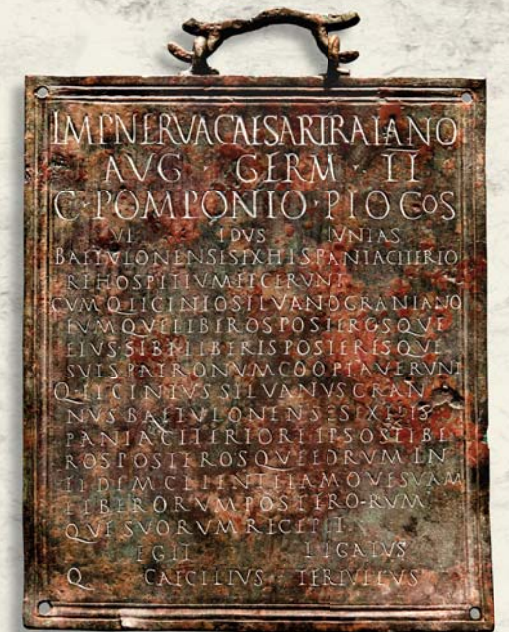 IMP NERVA CAESAR TRAIANO
AVG GERM · II
C · POMPONIO · PIO COS
VI IDVS IVNIAS
BAETVLONENSES EX HISPANIA CITERIO
RE HOSPITIVM FECERVNT
CVM Q LICINIO SILVANO GRANIANO
EVMQVE LIBEROS POSTEROSQVE
EIVS SIBI LIBERIS POSTERISQVE
SVIS PATRONVM COOPTAVERVNT
Q LICINIVS SILVANVS GRANIA
NVS BAETVLONENSES EX HIS
PANIA CITERIORE IPSOS LIBE
ROS POSTEROSQVE EORVM IN
FIDEM CLIENTELAMQVE SVAM
LIBERORVM POSTERO-RVM
QVE SVORVM RECEPIT
EGIT LEGATVS
Q CAECILIVS TERTVLLVS